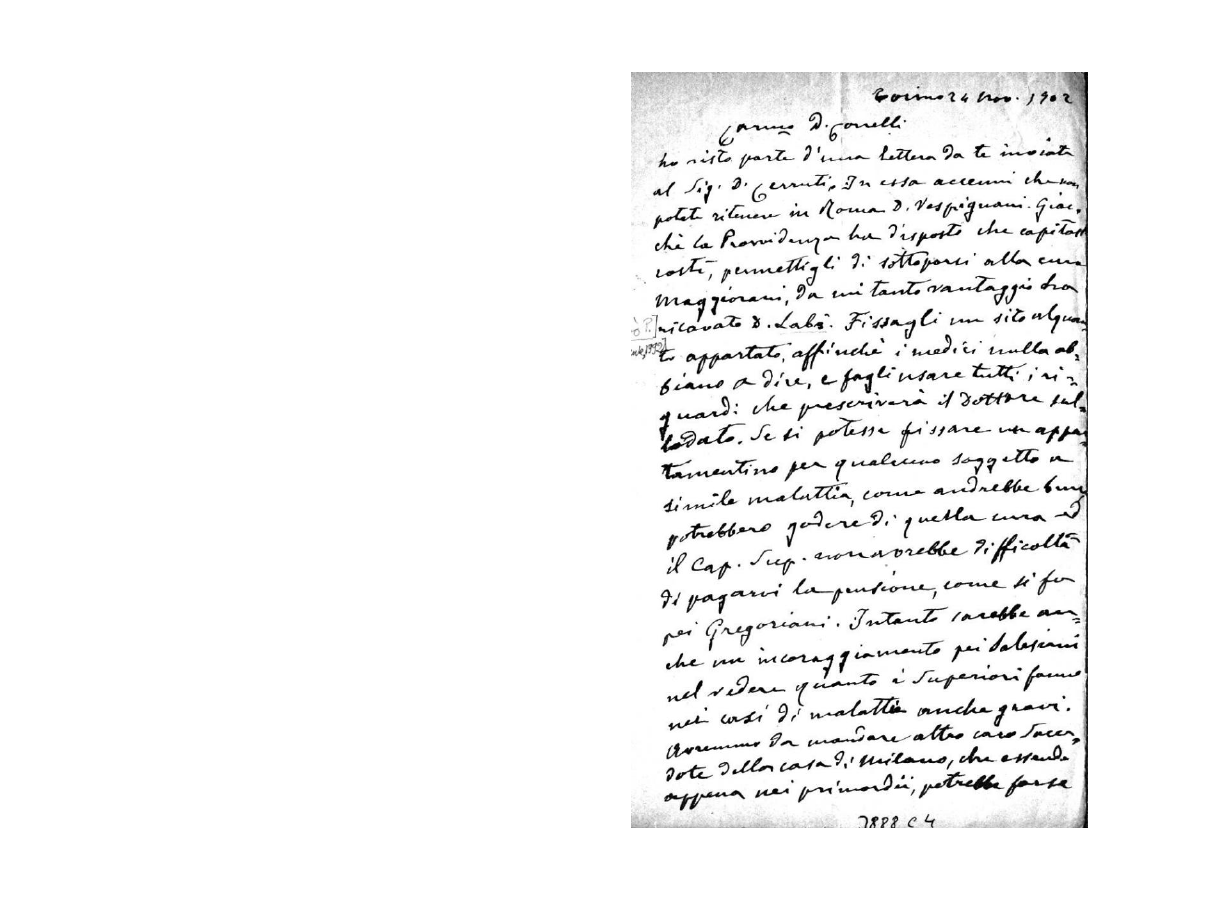 Torino 24 Nov. 1902
Carmo D. Conelli
ho visto parte d'una lettera da te inviata
al Sig. D. Cerruti. In essa accenni che non
potete ritenere in Roma D. Vespignani. Giac-
chè la Provvidenza ha disposto che capitasse
costì, permettigli di sottoporsi alla cura
Maggiorani, da cui tanto vantaggio ha
ricavato D. Labà. Fissagli un sito alquan
to appartato, affinchè i medici nulla ab-
biano a dire, e fagli usare tutti i ri-
guardi che prescriverà il Dottore sul-
lodato. Se si potesse fissare un appar
tamentino per qualcuno soggetto a
simile malattia, come andrebbe bene
potrebbero godere di quella cura ed
il Cap. Sup. non avrebbe difficoltà
di pagarvi la pensione, come si fa
pei Gregoriani. Intanto sarebbe an-
che un incoraggiamento pei Salesiani
nel vedere quanto i Superiori fanno
nei casi di malattia anche gravi.
Avremmo da mandare altro caro Sacer-
dote della casa di Milano, che essendo
appena nei primordii, potrebbe forse
3888 C 4